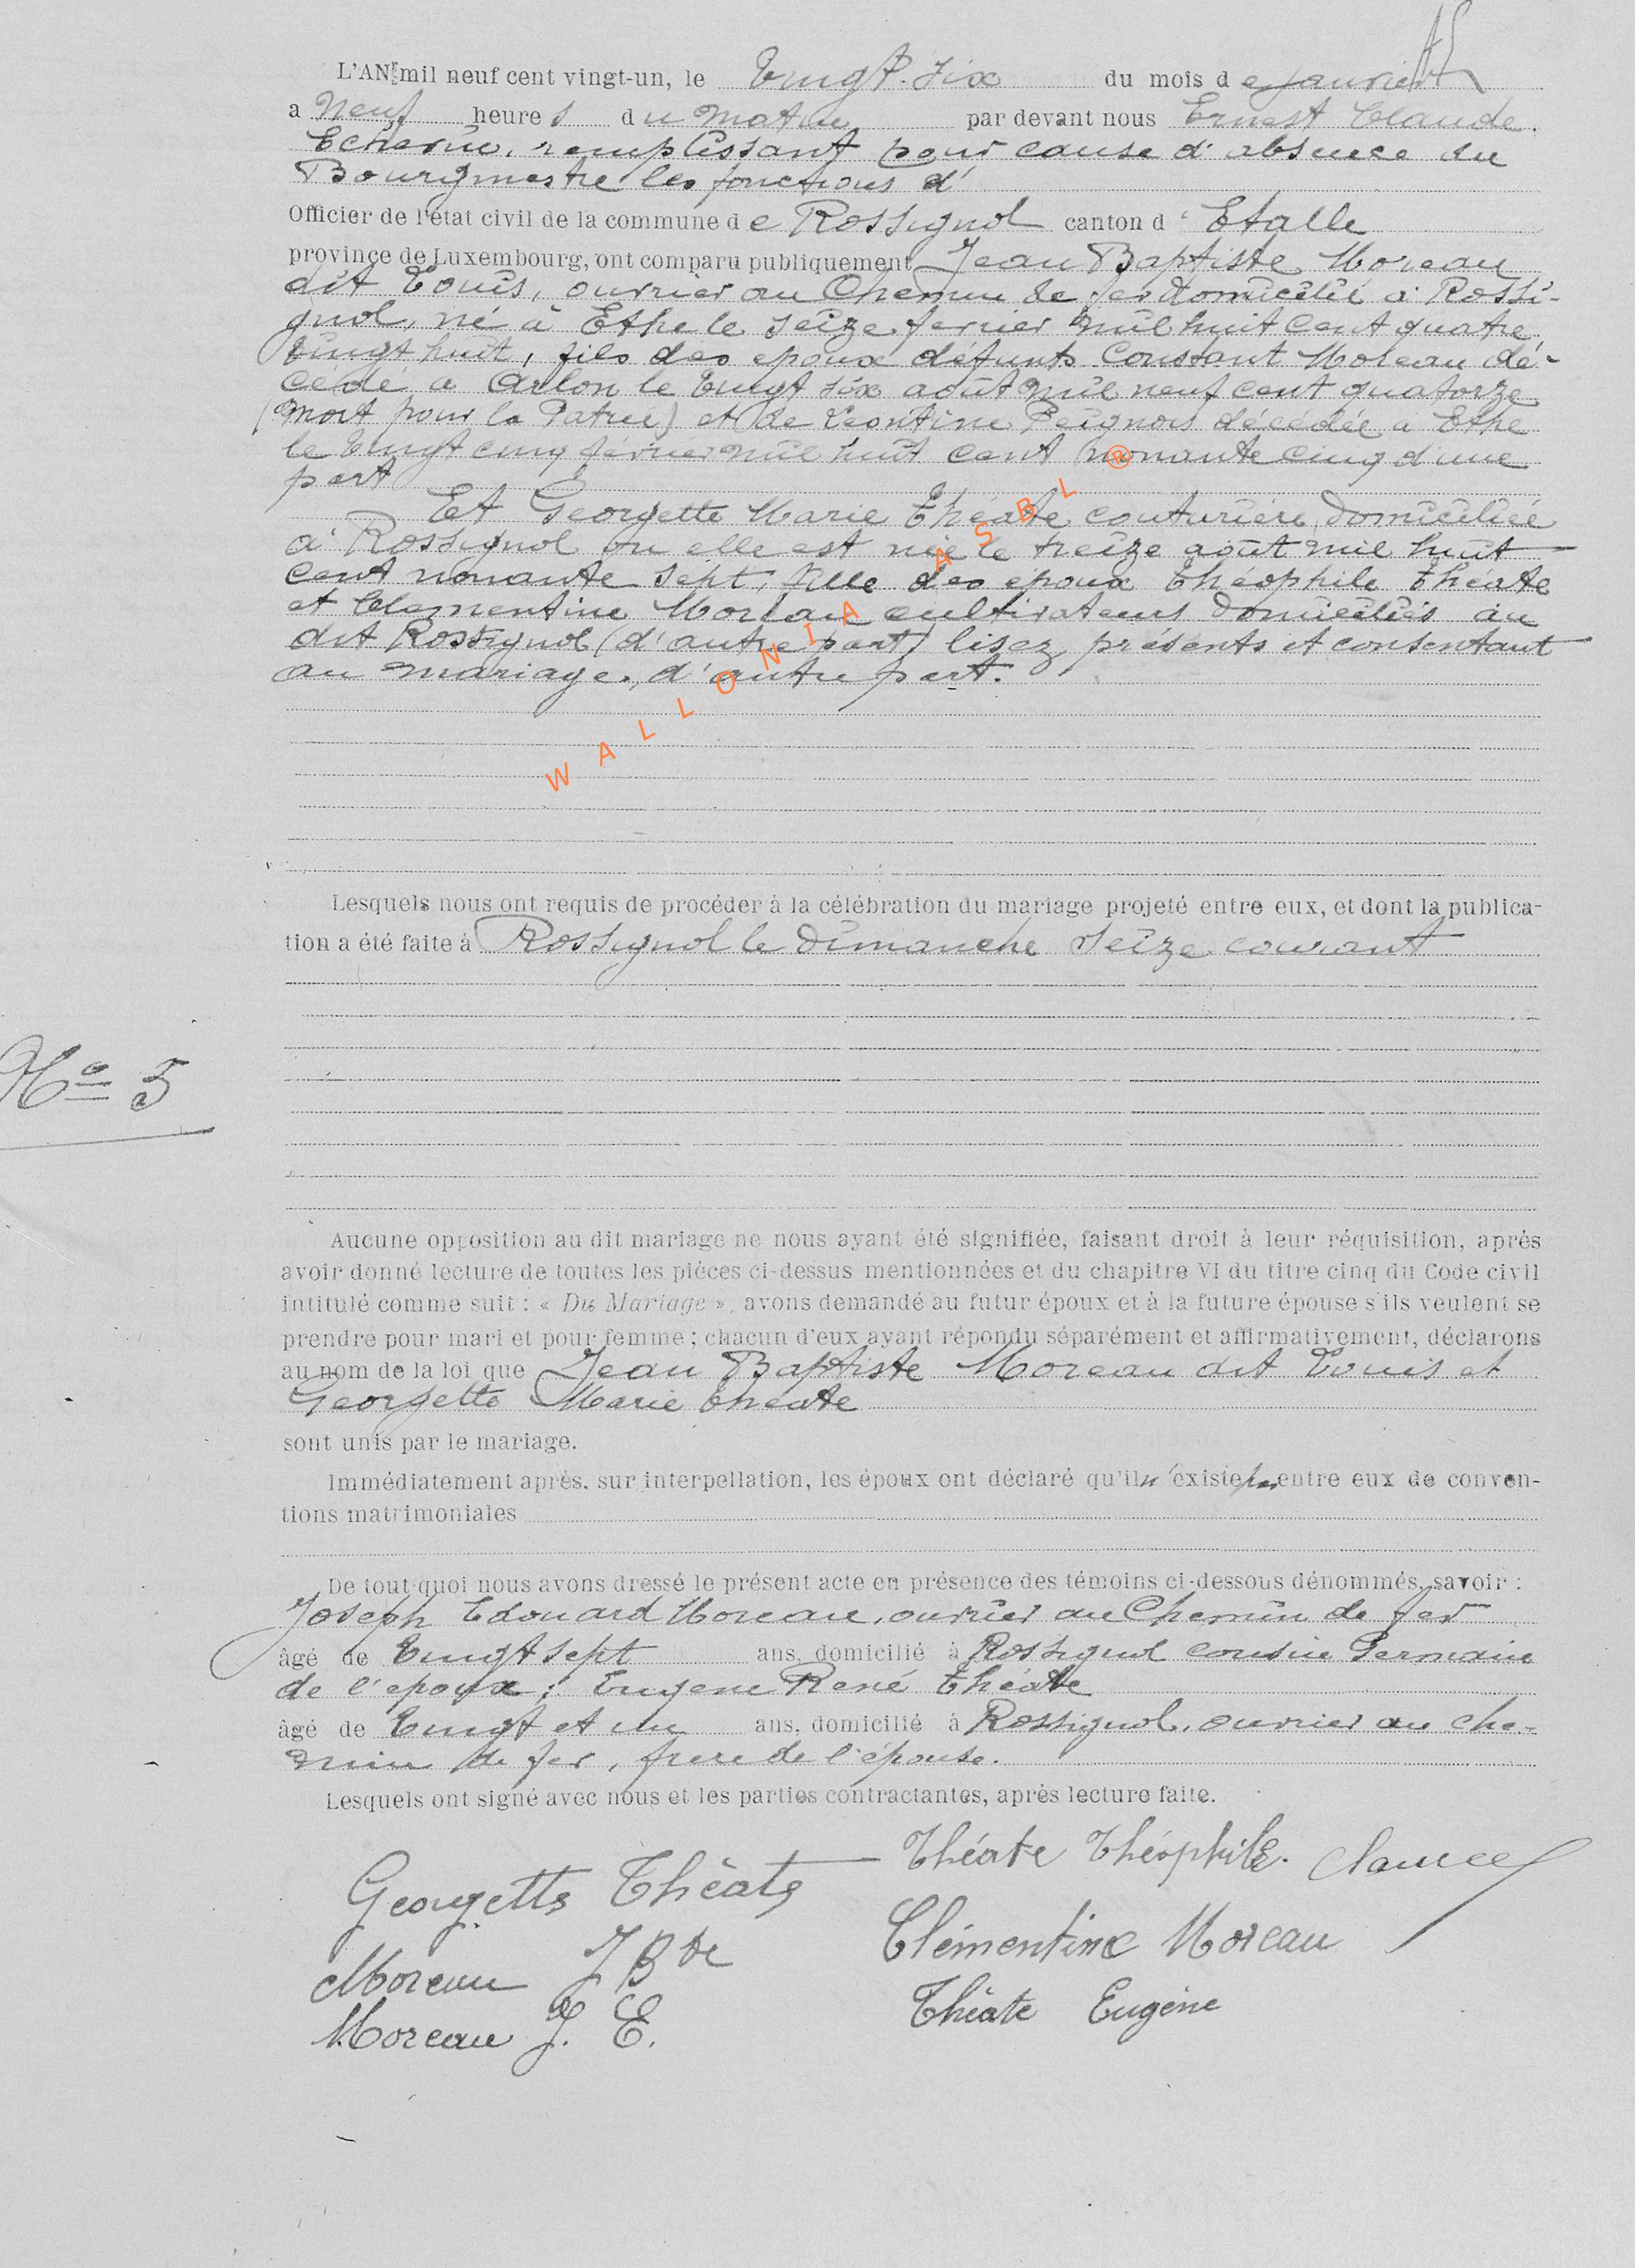 L'AN mil neuf cent vingt-un, le vingt-six du mois de janvier
a neuf heures du matin par devant nous Ernest Claude.
Echevin, remplissant pour cause d'absence du
Bourgmestre les fonctions d'
Officier de l'état civil de la commune de Rossignol canton d'Etalle
province de Luxembourg, ont comparu publiquement Jean Baptiste Moreau
dit Louis, ouvrier au Chemin de fer domicilié à Rossi-
gnol, né à Ethe le seize février mil huit cent quatre
vingt huit, fils des époux défunts Constant Moreau dé-
cédé à Arlon le vingt six août mil neuf cent quatorze
(mort pour la Patrie) et de Léontine Peignois décédée à Ethe
le vingt cinq février mil huit cent nonante cinq d'une
part
Et Georgette Marie Théate couturière, domiciliée
à Rossignol où elle est née le treize août mil huit
cent nonante sept, fille des époux Théophile Théate
et Clementine Moreau cultivateurs domiciliés au
dit Rossignol (d'autre part) lisez, présents et consentant
au mariage, d'autre part.
WALLONIA ASBL ®
Lesquels nous ont requis de procéder à la célébration du mariage projeté entre eux, et dont la publica-
tion a été faite à Rossignol le dimanche seize courant
No 5
Aucune opposition au dit mariage ne nous ayant été signifiée, faisant droit à leur réquisition, après
avoir donné lecture de toutes les pièces ci-dessus mentionnées et du chapitre VI du titre cinq du Code civil
intitulé comme suit : « Du Mariage », avons demandé au futur époux et à la future épouse s'ils veulent se
prendre pour mari et pour femme ; chacun d'eux ayant répondu séparément et affirmativement, déclarons
au nom de la loi que Jean Baptiste Moreau dit Louis et
Georgette Marie Théate
sont unis par le mariage.
Immédiatement après, sur interpellation, les époux ont déclaré qu'il n'existe pas entre eux de conven-
tions matrimoniales
De tout quoi nous avons dressé le présent acte en présence des témoins ci-dessous dénommés, savoir :
Joseph Edouard Moreau, ouvrier au Chemin de fer
âgé de vingt sept ans, domicilié à Rossignol cousin Germain
de l'époux ; Eugene René Théate
âgé de vingt et un ans, domicilié à Rossignol, ouvrier au che-
min de fer, frere de l'épouse.
Lesquels ont signé avec nous et les parties contractantes, après lecture faite.
Théate Théophile. Claude
Georgette Théate
Clémentine Moreau
Moreau J Bte
Théate Eugène
Moreau J. E.